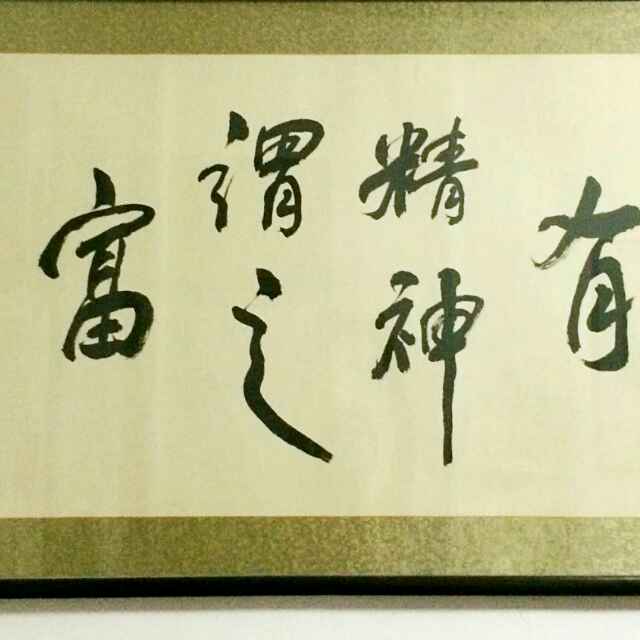 有
精神
謂之
富